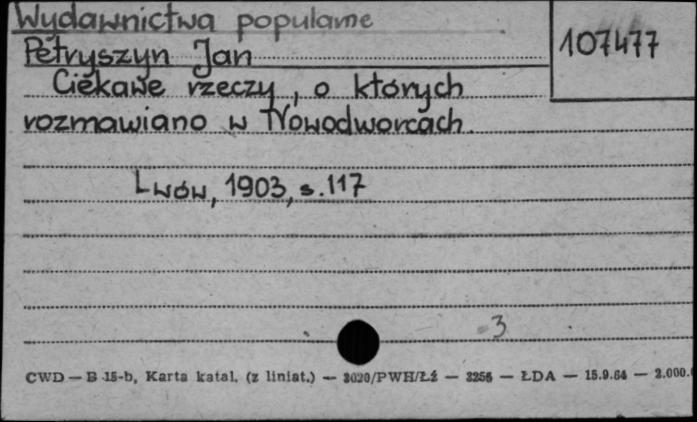 Wydawnictwa popularne
107477
Petryszyn Jan
Ciekawe rzeczy, o których
rozmawiano w Nowodworcach.
Lwów, 1903, s. 117
3
CWD — B 15-b, Karta katal. (z liniat.) — 3020/PWH/Łź — 3256 — ŁDA — 15.9.64 — 2.000.